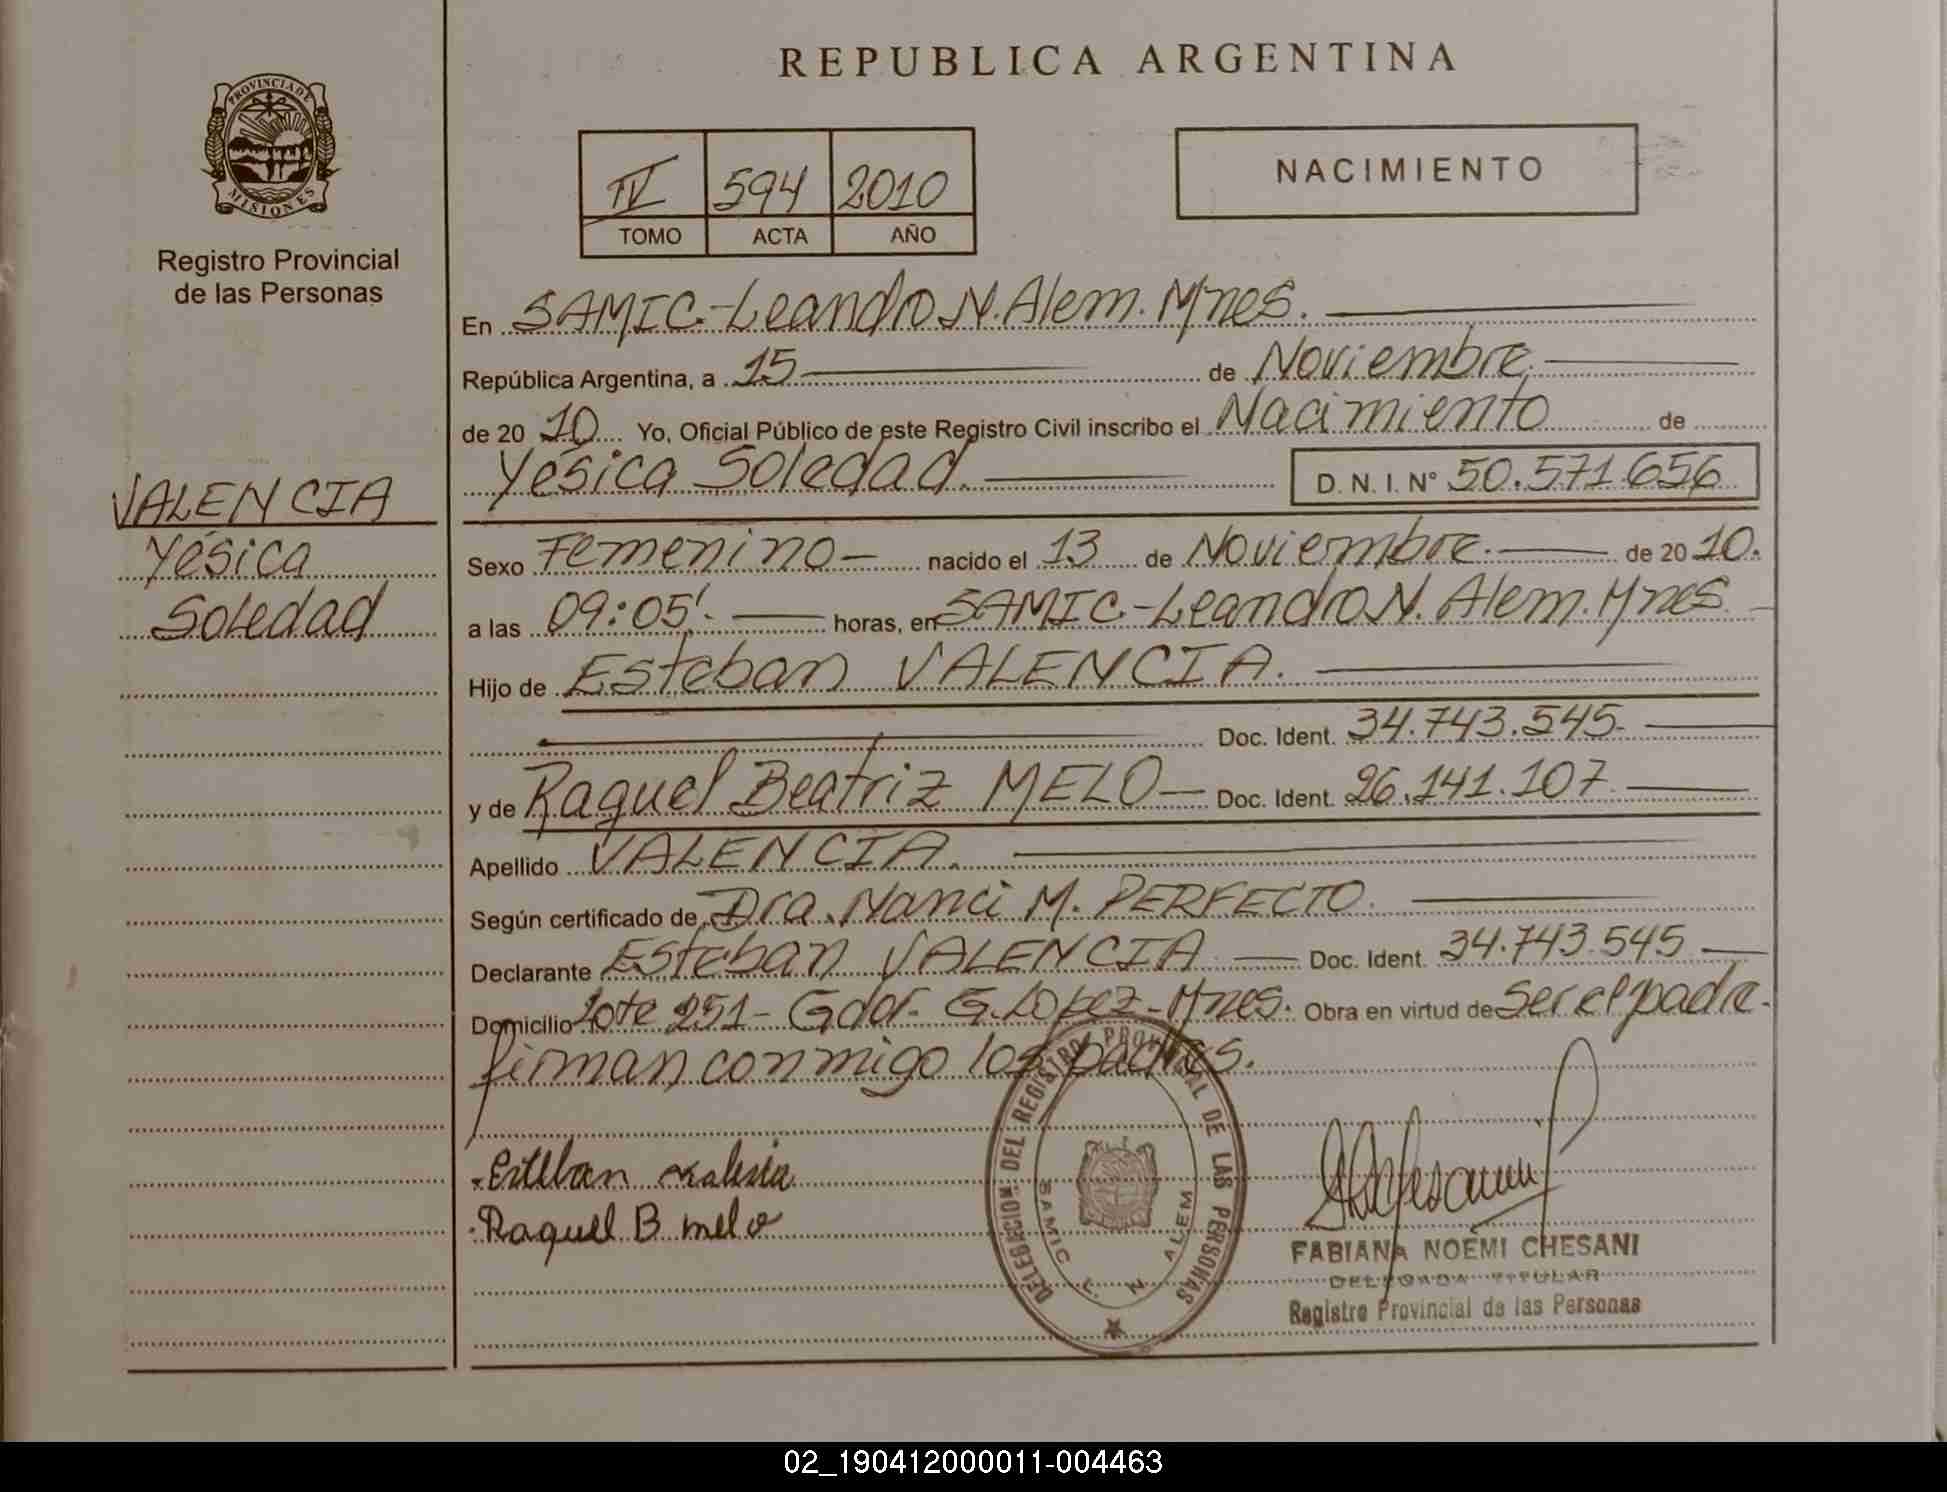 REPUBLICA ARGENTINA
PROVINCIA DE
MISIONES
Registro Provincial
de las Personas
IV 594 2010
TOMO ACTA AÑO
NACIMIENTO
En SAMIC.-Leandro N. Alem. Mnes.
República Argentina, a 15 de Noviembre
de 2010 Yo, Oficial Público de este Registro Civil inscribo el Nacimiento de
Yésica Soledad. D. N. I. Nº 50.571.656
VALENCIA
Yésica
Soledad
Sexo Femenino nacido el 13 de Noviembre. de 2010.
a las 09:05'. horas, en SAMIC.-Leandro N. Alem. Mnes
Hijo de Esteban VALENCIA.
Doc. Ident. 34.743.545
y de Raquel Beatriz MELO Doc. Ident. 26.141.107
Apellido VALENCIA.
Según certificado de Dra. Nanci M. PERFECTO.
Declarante Esteban VALENCIA Doc. Ident. 34.743.545
Domicilio Lote 251- Gdor. G. López-Mnes. Obra en virtud de Ser el padre.
firman conmigo los padres.
Esteban Valencia
Raquel B melo
DELEGACION DEL REGISTRO PROVINCIAL DE LAS PERSONAS
SAMIC L. N. ALEM
FABIANA NOEMI CHESANI
DELEGADA TITULAR
Registro Provincial de las Personas
02_190412000011-004463